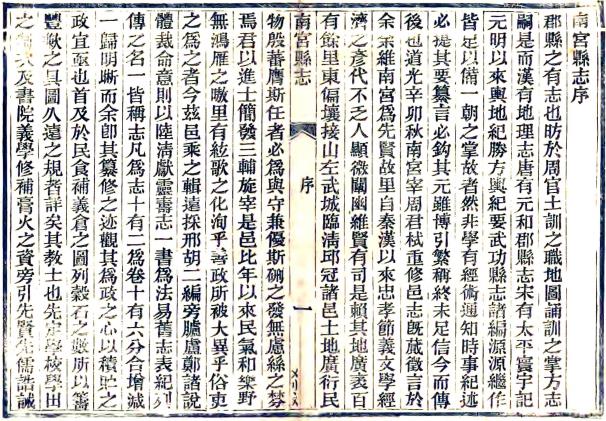 南宮縣志序
郡縣之有志也昉於周官土訓之職地圖誦訓之掌方志
嗣是而漢有地理志唐有元和郡縣志宋有太平寰宇記
元明以來輿地紀勝方輿紀要武功縣志諸編源源繼作
皆足以備一朝之掌故者然非學有經術通知時事紀述
必提其要纂言必鈎其元雖博引繁稱終未足信今而傳
後也道光辛卯秋南宮宰周君栻重修邑志既蕆徵言於
余余維南宮為先賢故里自秦漢以來忠孝節義文學經
濟之彥代不乏人顯微闡幽維賢有司是賴其地廣袤百
有餘里東偏壤接山左武城臨清邱冠諸邑土地廣衍民
南宮縣志
序
一
物殷蕃膺斯任者必為與守兼優斯硎之發無慮絲之棼
焉君以進士簡發三輔旋宰是邑比年以來民氣和樂野
無鴻雁之嗷里有絃歌之化洵乎善政所被大異乎俗吏
之為之者今茲邑乘之輯遠採邢胡二編旁臚盧鄭諸說
體裁命意則以陸清獻靈壽志一書為法易舊志表紀列
傳之名一皆稱志凡為志十有二為卷十有六分合增減
一歸明晰而余即其纂修之迹觀其為政之心以積貯之
政宜亟也首及於民食補義倉之圖列穀石之數所以籌
豐歉之具圖久遠之規者詳矣其教士也先定學校學田
之 及書院義學修補膏火之資旁引先賢 儒 誡